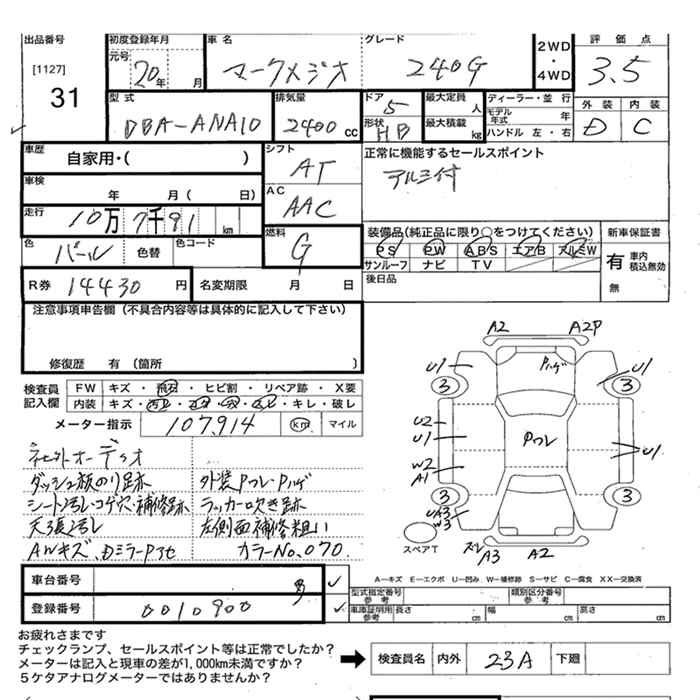 出品番号
[1127]
31
初度登録年月
元号
20年 月
車名
マークXジオ
グレード
240G
2WD
・
4WD
評価点
3.5
外装 内装
D C
型式
DBA-ANA10
排気量
2400cc
ドア
5
形状
HB
最大定員 人
最大積載 kg
ディーラー・並行
モデル年式 年
ハンドル 左・右
車歴
自家用・( )
シフト
AT
正常に機能するセールスポイント
アルミ付
車検
年 月( 日)
AC
AAC
走行
10万7千91 km
燃料
G
装備品(純正品に限り○をつけてください)
PS PW ABS エアB アルミW
サンルーフ ナビ TV
新車保証書
有 車内積込無効
無
色
パール
色替
色コード
後日品
R券 14430円
名変期限 月 日
注意事項申告欄(不具合内容等は具体的に記入して下さい)
修復歴 有(箇所 )
検査員記入欄
FW キズ・飛石・ヒビ割・リペア跡・X要
内装 キズ・汚レ・コゲ・穴・スレ・キレ・破レ
メーター指示 107,914 km マイル
ダッシュ板のり跡
シート汚レ・コゲ穴・補修跡
天張汚レ
外装Pフレ・Pハゲ
ラッカー吹き跡
左側面補修粗い
カラーNo,070
A2 A2P
Pハゲ
U1 U1
3 3
U2
U1
Pフレ
U1
W2
A1
3 3
UA3
W3
スペアT
A3 A2
A―キズ E―エクボ U―凹み W―補修跡 S―サビ C―腐食 XX―交換済
車台番号
登録番号 0010900
型式指定番号 参考
類別区分番号 参考
車庫証明用 参考 長さ cm 幅 cm 高さ cm
お疲れさまです
チェックランプ、セールスポイント等は正常でしたか?
メーターは記入と現車の差が1,000km未満ですか?
5ケタアナログメーターではありませんか?
検査員名 内外 23A 下廻